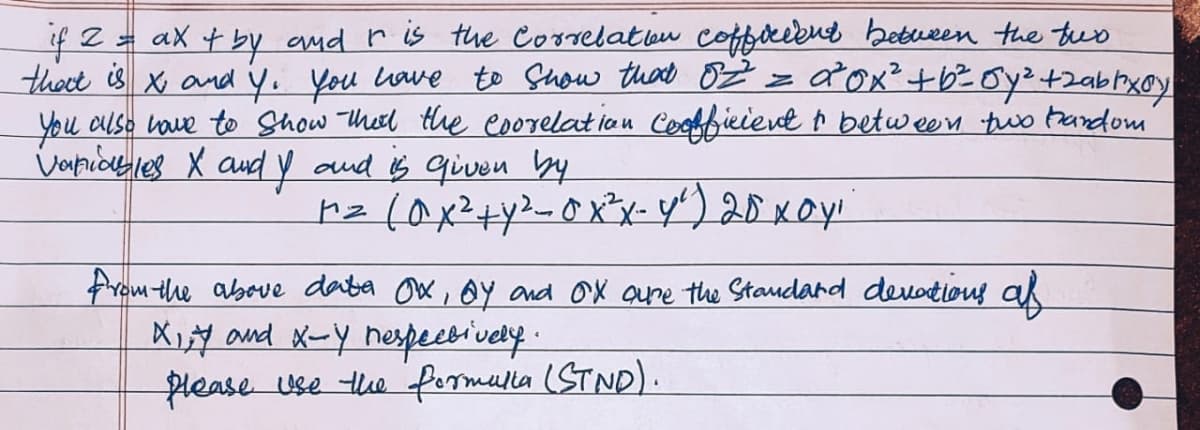 if z = ax + by and r is the Correlation coffiecient between the two
thact is X, and Y. You have to Show that σz² = a²σx² + b²σy² + 2abrxσy
You also have to Show that the coorelation Coefficient r between two random
Variables X and y and is given by
r = (σx²+y²-σx²x-y²) 2σxσyi
from the above data σx, σy and σx are the Standard deviations of
X, y and x-y respectively.
please use the formula (STND).